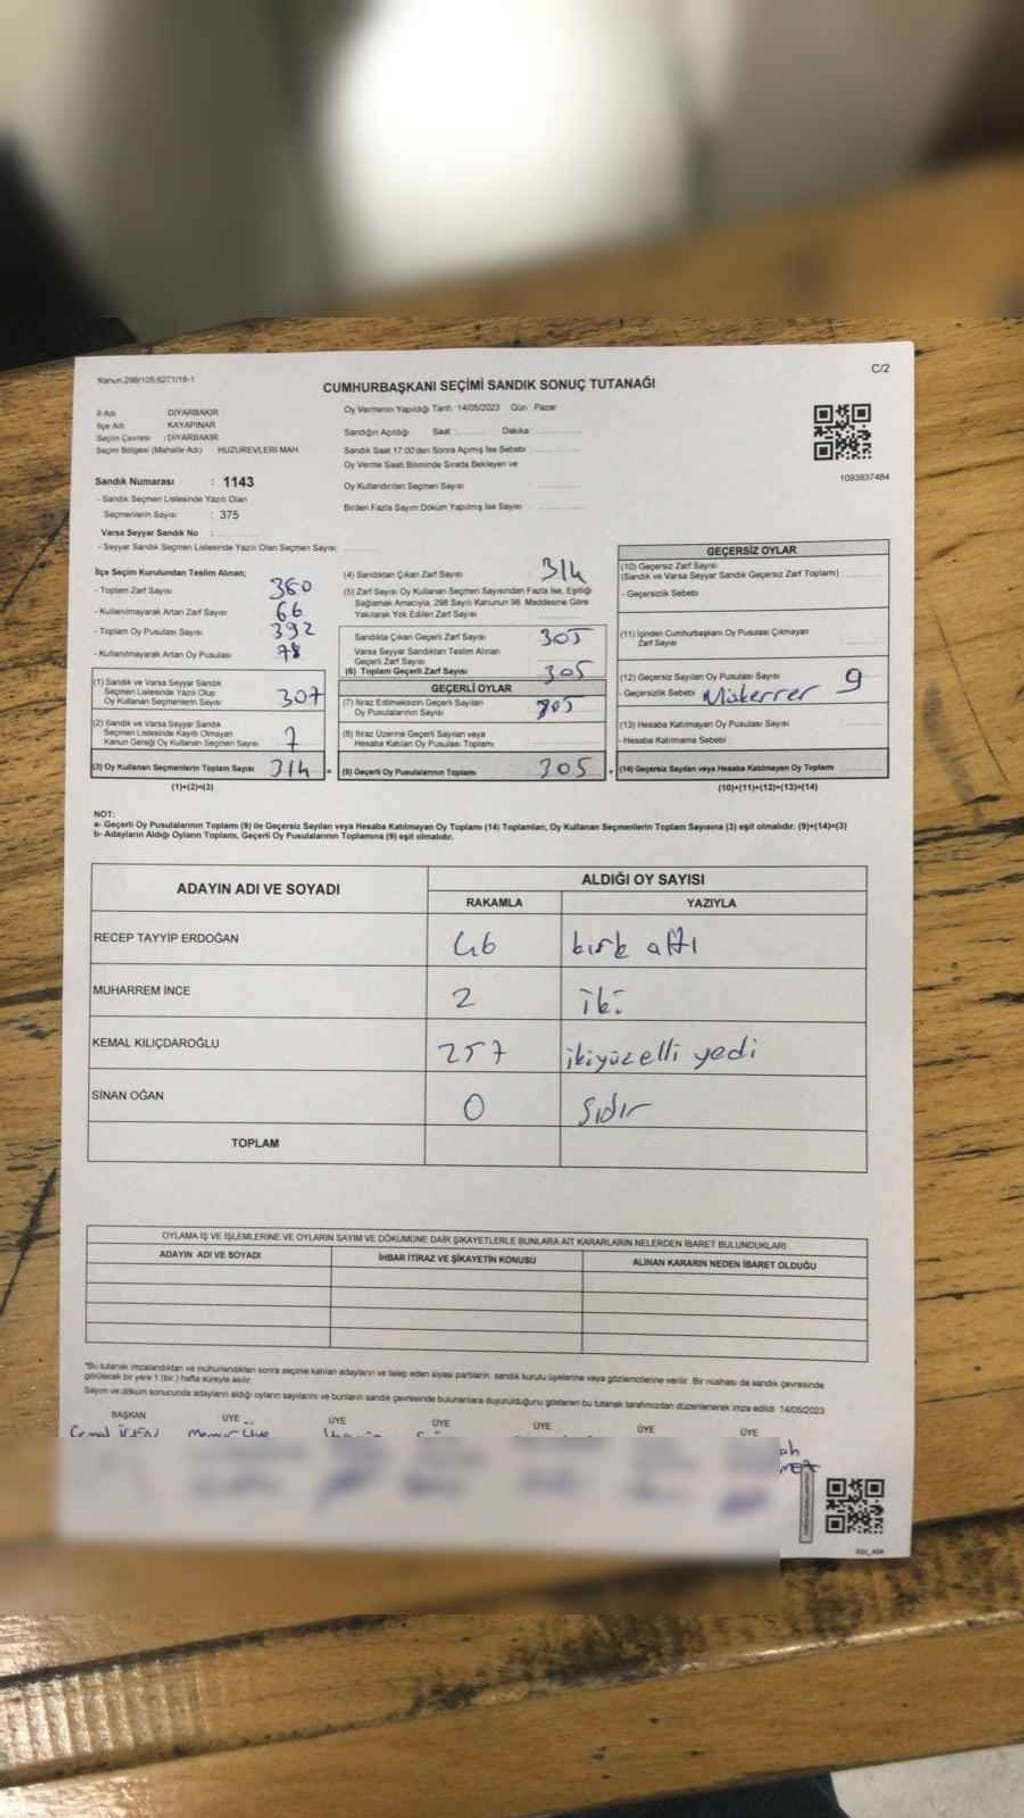 Kanun:298/105;6271/18-1
C/2
CUMHURBAŞKANI SEÇİMİ SANDIK SONUÇ TUTANAĞI
İl Adı DİYARBAKIR
İlçe Adı KAYAPINAR
Seçim Çevresi : DİYARBAKIR
Seçim Bölgesi (Mahalle Adı) HUZUREVLERİ MAH
Sandık Numarası : 1143
- Sandık Seçmen Listesinde Yazılı Olan
Seçmenlerin Sayısı : 375
Varsa Seyyar Sandık No :
- Seyyar Sandık Seçmen Listesinde Yazılı Olan Seçmen Sayısı
Oy Vermenin Yapıldığı Tarih 14/05/2023 Gün Pazar
Sandığın Açıldığı Saat Dakika
Sandık Saat 17:00'den Sonra Açılmış İse Sebebi
Oy Verme Saati Bitiminde Sırada Bekleyen ve
Oy Kullandırılan Seçmen Sayısı
Birden Fazla Sayım Döküm Yapılmış İse Sayısı
1093837484
İlçe Seçim Kurulundan Teslim Alınan;
- Toplam Zarf Sayısı 380
- Kullanılmayarak Artan Zarf Sayısı 66
- Toplam Oy Pusulası Sayısı 392
- Kullanılmayarak Artan Oy Pusulası 78
(1) Sandık ve Varsa Seyyar Sandık
Seçmen Listesinde Yazılı Olup
Oy Kullanan Seçmenlerin Sayısı 307
(2) Sandık ve Varsa Seyyar Sandık
Seçmen Listesinde Kayıtlı Olmayan
Kanun Gereği Oy Kullanan Seçmen Sayısı 7
(3) Oy Kullanan Seçmenlerin Toplam Sayısı 314
(1)+(2)=(3)
(4) Sandıktan Çıkan Zarf Sayısı 314
(5) Zarf Sayısı Oy Kullanan Seçmen Sayısından Fazla İse, Eşitliği
Sağlamak Amacıyla, 298 Sayılı Kanunun 98. Maddesine Göre
Yakılarak Yok Edilen Zarf Sayısı
Sandıkta Çıkan Geçerli Zarf Sayısı 305
Varsa Seyyar Sandıktan Teslim Alınan
Geçerli Zarf Sayısı
(6) Toplam Geçerli Zarf Sayısı 305
GEÇERLİ OYLAR
(7) İtiraz Edilmeksizin Geçerli Sayılan
Oy Pusulalarının Sayısı 305
(8) İtiraz Üzerine Geçerli Sayılan veya
Hesaba Katılan Oy Pusulası Toplamı
(9) Geçerli Oy Pusulalarının Toplamı 305
GEÇERSİZ OYLAR
(10) Geçersiz Zarf Sayısı
(Sandık ve Varsa Seyyar Sandık Geçersiz Zarf Toplamı)
- Geçersizlik Sebebi
(11) İçinden Cumhurbaşkanı Oy Pusulası Çıkmayan
Zarf Sayısı
(12) Geçersiz Sayılan Oy Pusulası Sayısı 9
- Geçersizlik Sebebi Mükerrer
(13) Hesaba Katılmayan Oy Pusulası Sayısı
- Hesaba Katılmama Sebebi
(14) Geçersiz Sayılan veya Hesaba Katılmayan Oy Toplamı
(10)+(11)+(12)+(13)=(14)
NOT:
a- Geçerli Oy Pusulalarının Toplamı (9) ile Geçersiz Sayılan veya Hesaba Katılmayan Oy Toplamı (14) Toplamları, Oy Kullanan Seçmenlerin Toplam Sayısına (3) eşit olmalıdır. (9)+(14)=(3)
b- Adayların Aldığı Oyların Toplamı, Geçerli Oy Pusulalarının Toplamına (9) eşit olmalıdır.
ADAYIN ADI VE SOYADI
ALDIĞI OY SAYISI
RAKAMLA YAZIYLA
RECEP TAYYİP ERDOĞAN 46 kırk altı
MUHARREM İNCE 2 iki
KEMAL KILIÇDAROĞLU 257 ikiyüzelli yedi
SİNAN OĞAN 0 sıdır
TOPLAM
OYLAMA İŞ VE İŞLEMLERİNE VE OYLARIN SAYIM VE DÖKÜMÜNE DAİR ŞİKAYETLERLE BUNLARA AİT KARARLARIN NELERDEN İBARET BULUNDUKLARI
ADAYIN ADI VE SOYADI İHBAR İTİRAZ VE ŞİKAYETİN KONUSU ALINAN KARARIN NEDEN İBARET OLDUĞU
"Bu tutanak imzalandıktan ve mühürlendikten sonra seçime katılan adayların ve talep eden siyasi partilerin sandık kurulu üyelerine veya gözlemcilerine verilir. Bir nüshası da sandık çevresinde
görülecek bir yere 1 (bir ) hafta süreyle asılır.
Sayım ve döküm sonucunda adayların aldığı oyların sayılarını ve bunların sandık çevresinde bulunanlara duyurulduğunu gösteren bu tutanak tarafımızdan düzenlenerek imza edildi. 14/05/2023
BAŞKAN ÜYE ÜYE ÜYE ÜYE ÜYE ÜYE